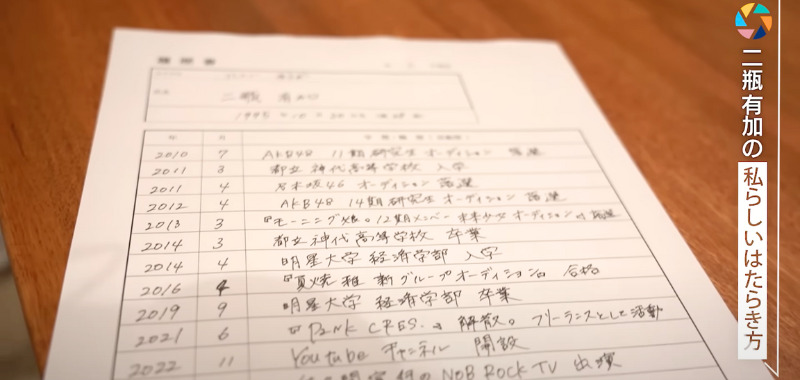 履歴書
二瓶 有加
2010 7 AKB48 11期研究生オーディション 落選
2011 3 都立神代高等学校 入学
2011 4 乃木坂46 オーディション 落選
2012 4 AKB48 14期研究生オーディション 落選
2013 3 『モーニング娘。12期メンバー 未来少女オーディション』落選
2014 3 都立神代高等学校 卒業
2014 4 明星大学 経済学部 入学
2016 4 『夏焼雅 新グループオーディション』合格
2019 9 明星大学 経済学部 卒業
2021 6 『PINK CRES.』解散。フリーランスとして活動
2022 11 Youtube チャンネル 開設
NOB ROCK TV 出演
二瓶有加の
私らしいはたらき方